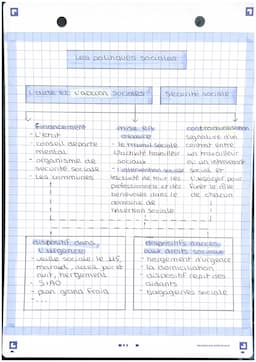 Les politiques sociales
L'aide et l'action sociales
Sécurité sociale
financement
- L'Etat
- conseil départe
mental
- organisme de
sécurité sociale
- Les communes
mise en
oeuvre
- le travail social
L'activité travailleur
sociaux
- l'intervention sociale
activité de tous les
professionnels et des
bénévoles dans le
domaine de
l'insertion sociale
contractualisation
signature d'un
contrat entre
un travailleur
ou un intervenant
social et
l'usager pour
fixer le rôle
de chacun
dispositif dans
l'urgence
- veille sociale: le 115,
maraud, accueil jour et
nuit, hergement
- SIAO
- plan grand froid
- ...
dispositifs d'accès
aux droits sociaux
- hergement d'urgence
- la domiciliation
- dispositif répit des
aidants
- bagageries sociale